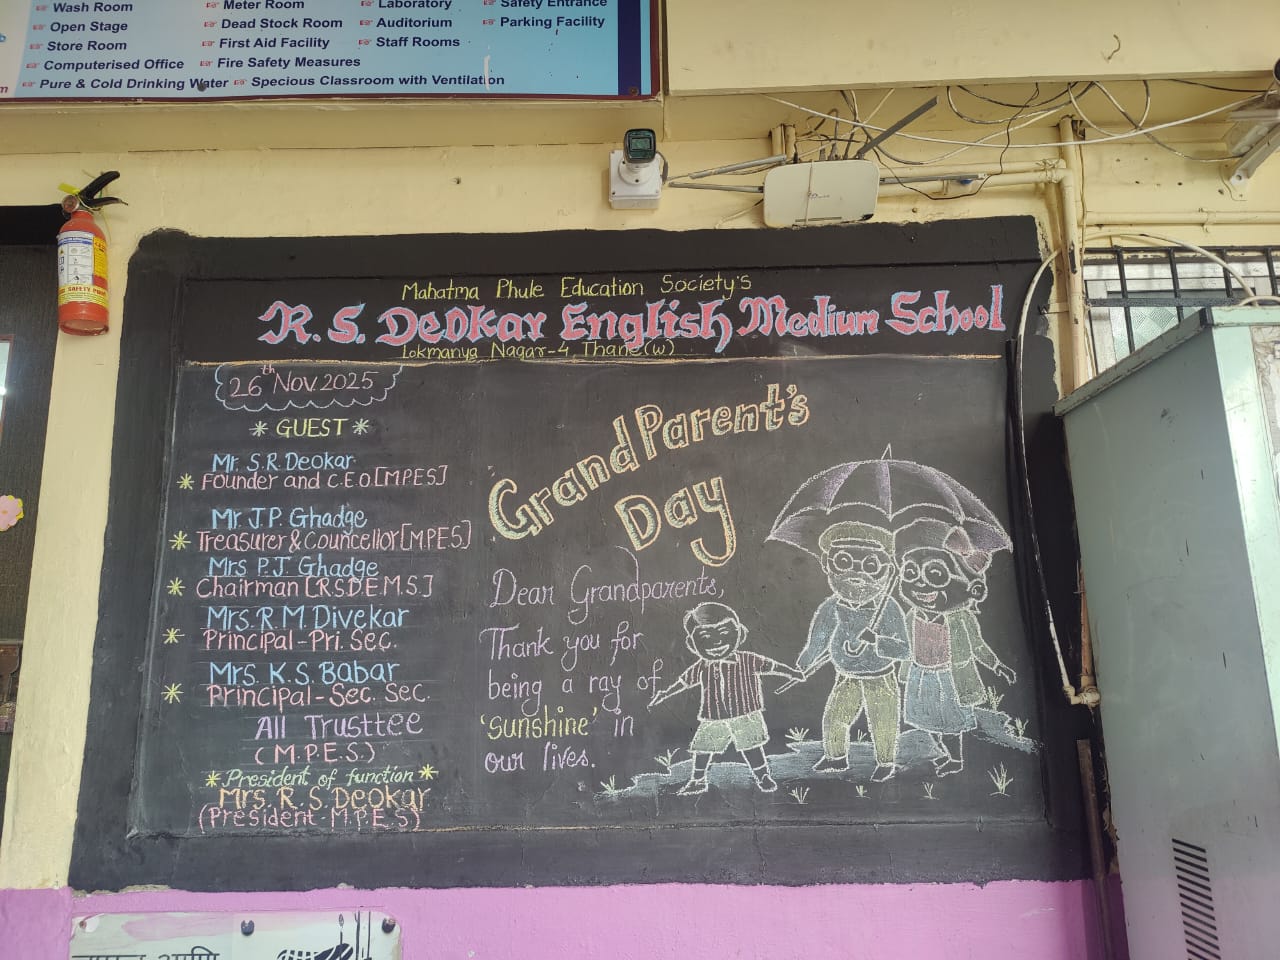 Wash Room
Open Stage
Store Room
Computerised Office
Pure & Cold Drinking Water
Meter Room
Dead Stock Room
First Aid Facility
Fire Safety Measures
Specious Classroom with Ventilation
Laboratory
Auditorium
Staff Rooms
Safety Entrance
Parking Facility
Mahatma Phule Education Society's
R.S. Deokar English Medium School
Lokmanya Nagar-4, Thane (w)
26th Nov. 2025
* GUEST *
Mr. S.R. Deokar
* Founder and C.E.O [M.P.E.S]
Mr. J.P. Ghadge
* Treasurer & Councellor [M.P.E.S]
Mrs P.J. Ghadge
* Chairman [R.S.D.E.M.S.]
Mrs. R.M. Divekar
* Principal-Pri. Sec.
Mrs. K.S. Babar
* Principal-Sec. Sec.
All Trusttee
(M.P.E.S.)
* President of function *
Mrs. R.S. Deokar
(President-M.P.E.S)
GrandParent's
Day
Dear Grandparents,
Thank you for
being a ray of
'sunshine' in
our lives.